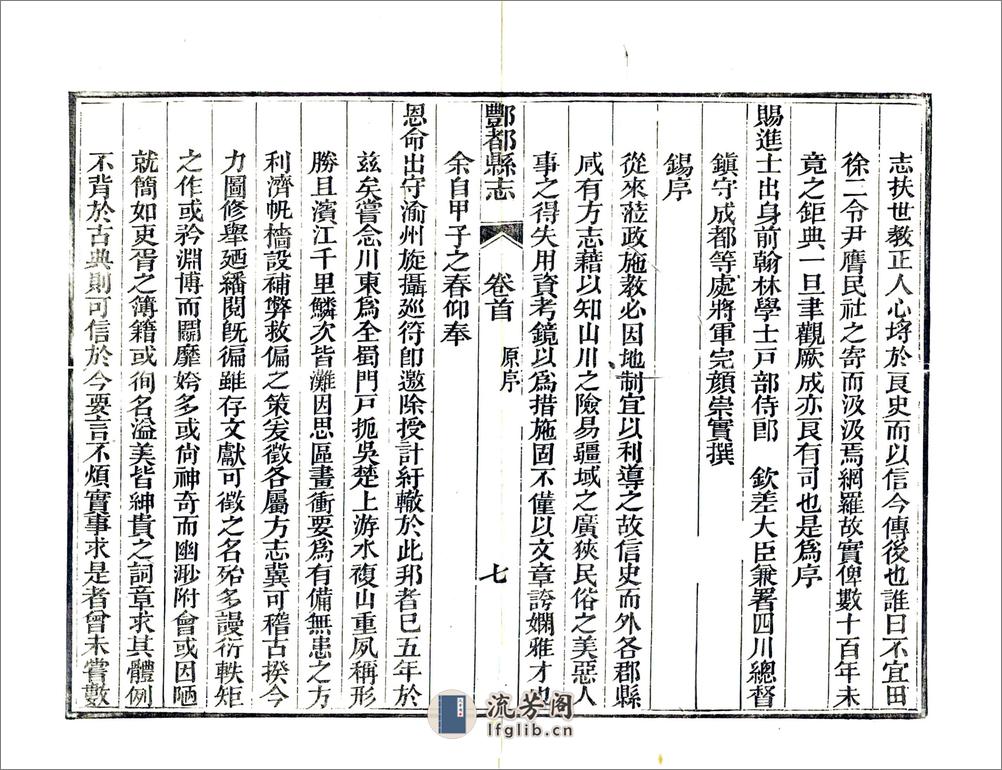 志扶世教正人心將於良史而以信今傳後也誰曰不宜田
徐二令尹膺民社之寄而汲汲焉網羅故實俾數十百年未
竟之鉅典一旦聿觀厥成亦良有司也是爲序
賜進士出身前翰林學士戸部侍郎 欽差大臣兼署四川總督
鎭守成都等處將軍完顔崇實撰
錫序
從來蒞政施教必因地制宜以利導之故信史而外各郡縣
咸有方志藉以知山川之險易疆域之廣狹民俗之美惡人
事之得失用資考鏡以爲措施固不僅以文章誇嫻雅才也
酆都縣志 卷首 原序 七
余自甲子之春仰奉
恩命出守渝州旋攝廵符卽邀除授計紆轍於此邦者已五年於
茲矣嘗念川東爲全蜀門戸扼吳楚上游水複山重夙稱形
勝且濱江千里鱗次皆灘因思區畫衝要爲有備無患之方
利濟帆檣設補弊救偏之策爰徵各屬方志冀可稽古揆今
力圖修舉廼繙閱旣徧雖存文獻可徵之名殆多謾衍軼矩
之作或矜淵博而鬭靡姱多或尙神奇而幽渺附會或因陋
就簡如吏胥之簿籍或徇名溢美皆紳貴之詞章求其體例
不背於古典則可信於今要言不煩實事求是者曾未嘗數
流芳阁
lfglib.cn